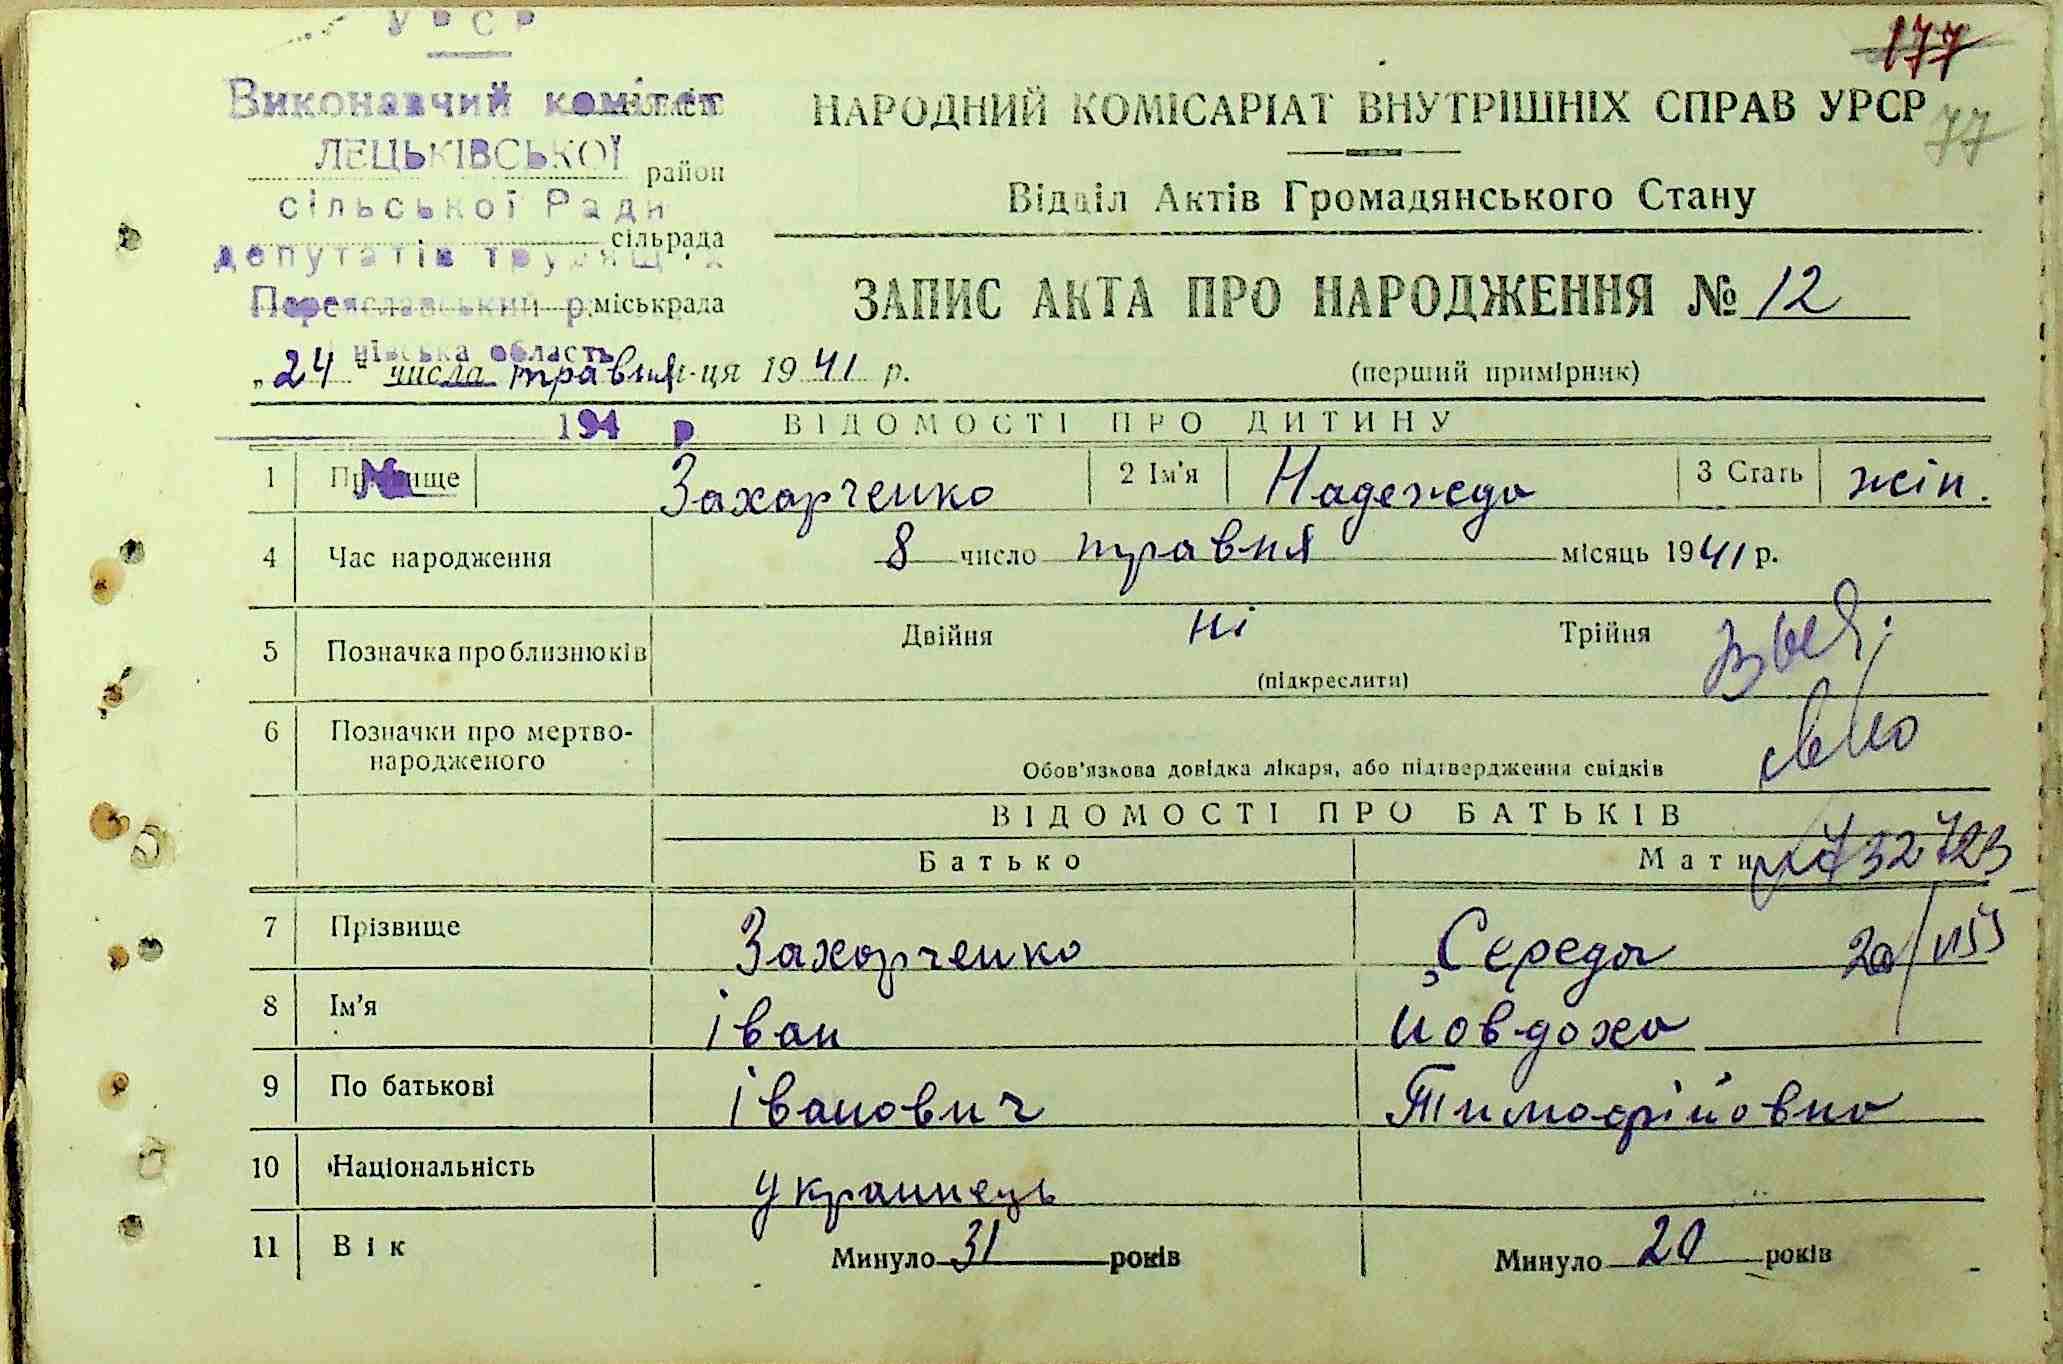 УРСР
177
Виконавчий комітет
НАРОДНИЙ КОМІСАРІАТ ВНУТРІШНІХ СПРАВ УРСР
77
ЛЕЦЬКІВСЬКОЇ
район
Відділ Актів Громадянського Стану
сільської Ради
сільрада
депутатів трудящих
ЗАПИС АКТА ПРО НАРОДЖЕННЯ № 12
Переяславський р. міськрада
область
„24“ числа травня м-ця 1941 р.
(перший примірник)
194 р
ВІДОМОСТІ ПРО ДИТИНУ
№
1 Прізвище Захарченко 2 Ім'я Надежда 3 Стать жін.
4 Час народження 8 число травня місяць 1941 р.
5 Позначка про близнюків Двійня ні Трійня
(підкреслити)
6 Позначки про мертво-
народженого
Обов'язкова довідка лікаря, або підтвердження свідків
ВІДОМОСТІ ПРО БАТЬКІВ
Батько Мати
732723
7 Прізвище Захарченко Середа
8 Ім'я Іван Йовдоха
9 По батькові Іванович Тимофійовна
10 Національність українець
11 Вік Минуло 31 років Минуло 20 років